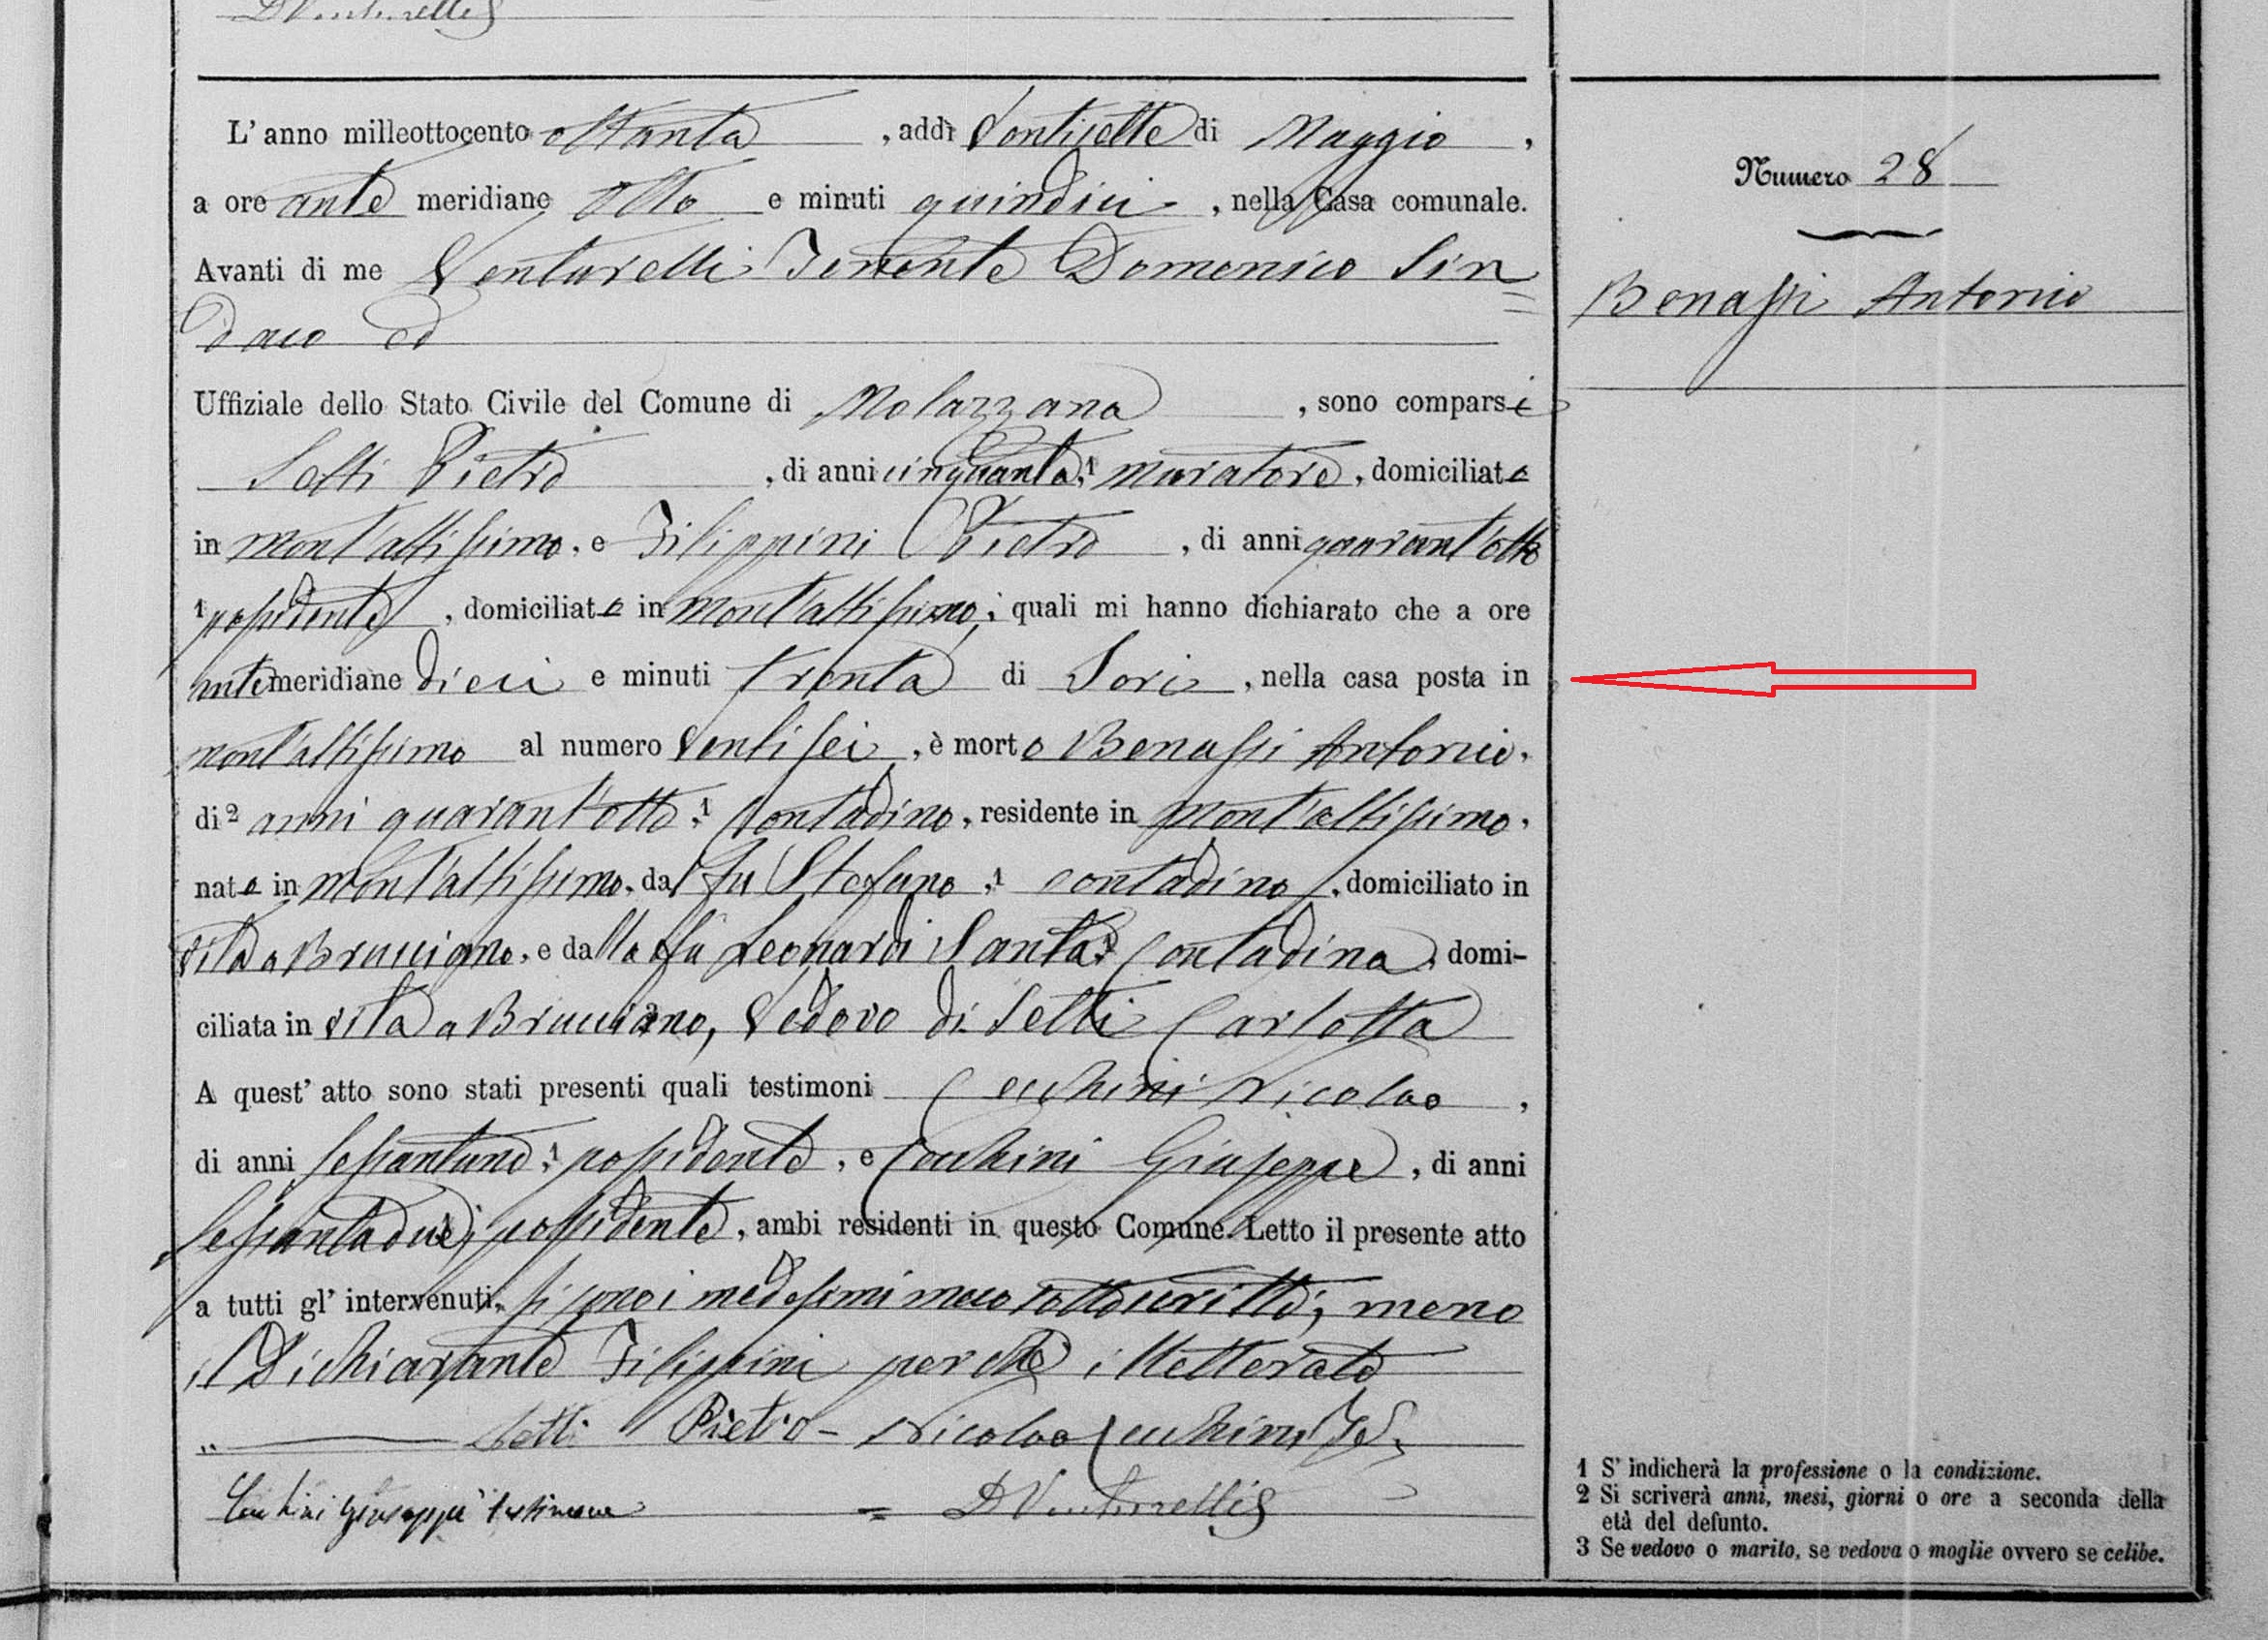 D Venturelli S
L' anno milleottocento ottanta , addì Ventisette di Maggio ,
a ore ante meridiane Otto e minuti quindici , nella Casa comunale.
Avanti di me Venturelli Tenente Domenico Sin=
daco ed
Uffiziale dello Stato Civile del Comune di Molazzana , sono comparsi
Setti Pietro , di anni cinquanta, 1 muratore, domiciliato
in Mont'altissimo, e Filippini Pietro , di anni quarant'otto
1 possidente , domiciliato in Mont'altissimo, i quali mi hanno dichiarato che a ore
antemeridiane dieci e minuti trenta di Jeri , nella casa posta in
Mont'altissimo al numero Ventisei , è morto Benassi Antonio,
di 2 anni quarant'otto, 1 Contadino, residente in Mont'altissimo,
nato in Mont'altissimo, dal fu Stefano , 1 contadino , domiciliato in
vita a Brucciano, e dalla fu Leonardi Santa 1 Contadina, domi-
ciliata in vita a Brucciano, Vedovo di Setti Carlotta
A quest' atto sono stati presenti quali testimoni Cecchini Nicolao ,
di anni sessantuno, 1 possidente , e Cecchini Giuseppe , di anni
sessantadue, possidente , ambi residenti in questo Comune. Letto il presente atto
a tutti gl' intervenuti, si sono i medesimi meco sottoscritti, meno
il Dichiarante Filippini perchè illetterato
Setti Pietro - Nicolao Cecchini
Cecchini Giuseppe testimone = D Venturelli S
Numero 28
Benassi Antonio
1 S' indicherà la professione o la condizione.
2 Si scriverà anni, mesi, giorni o ore a seconda della
età del defunto.
3 Se vedovo o marito, se vedova o moglie ovvero se celibe.